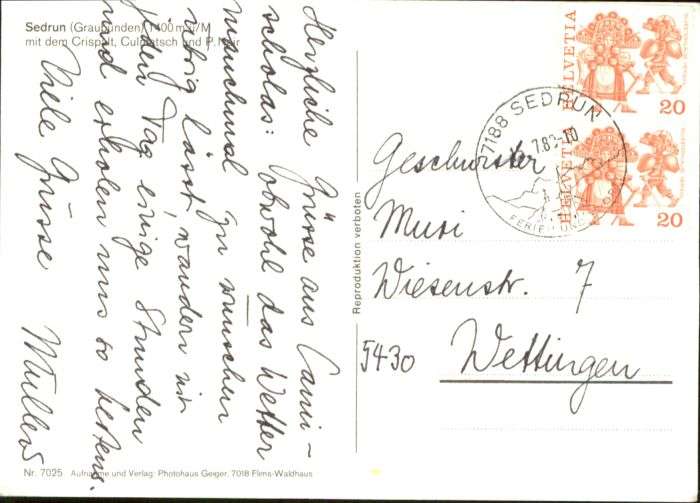 Sedrun (Graubünden) 1400 m ü/M
mit dem Crispalt, Culmatsch und P. Nair
Herzliche Grüsse aus Cami-
scholas: obwohl das Wetter
manchmal zu wünschen
übrig lässt, wandern wir
jeden Tag einige Stunden
und erholen uns so bestens.
Viele Grüsse
Nr. 7025 Aufnahme und Verlag: Photohaus Geiger, 7018 Flims-Waldhaus
Reproduktion verboten
HELVETIA
20
HELVETIA
20
7188 SEDRUN
FERIEN UND
Geschwister
Musi
Wiesenstr. 7
5430 Wettingen